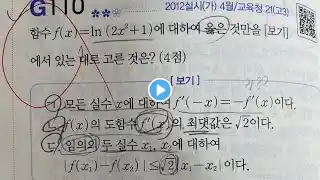 G110
2012실시(가) 4월/교육청 21(고3)
함수 f(x)=ln (2x²+1)에 대하여 옳은 것만을 [보기]
에서 있는 대로 고른 것은? (4점)
[보기]
ㄱ. 모든 실수 x에 대하여 f′(-x)=-f′(x)이다.
ㄴ. f(x)의 도함수 f′(x)의 최댓값은 √2이다.
ㄷ. 임의의 두 실수 x₁, x₂에 대하여
|f(x₁)-f(x₂)| ≤ √2|x₁-x₂|이다.